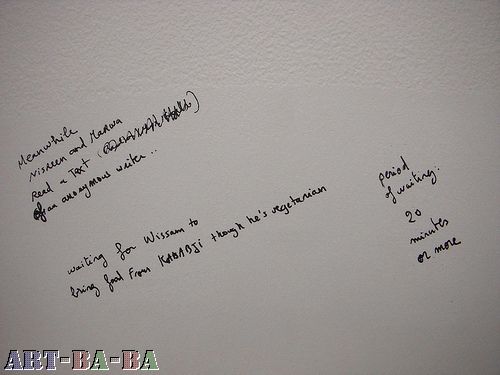 Meanwhile
Nisreen and Marwa
Read a Text (
of an anonymous writer..
waiting for Wissam to
bring food from KABABJI though he's vegetarian
period
of waiting:
20
minutes
or more
ART-BA-BA